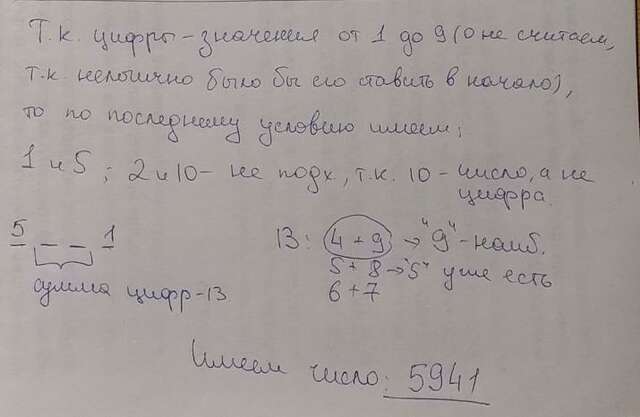 Т.к. цифры-значения от 1 до 9 (0 не считаем,
т.к. нелогично было бы его ставить в начало),
то по последнему условию имеем:
1 и 5; 2 и 10 - не подх, т.к. 10 - число, а не
цифра.
5 _ _ 1
сумма цифр-13
13: 4 + 9 → "9"-наиб.
5 + 8 → "5" уже есть
6 + 7
Имеем число: 5941